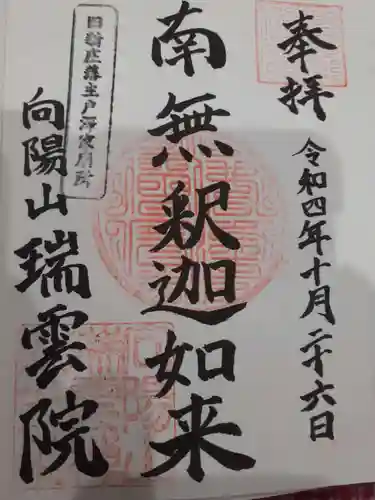 奉拝
令和四年十月二十六日
南無釈迦如来
旧新庄藩主戸沢家墓所
向陽山瑞雲院